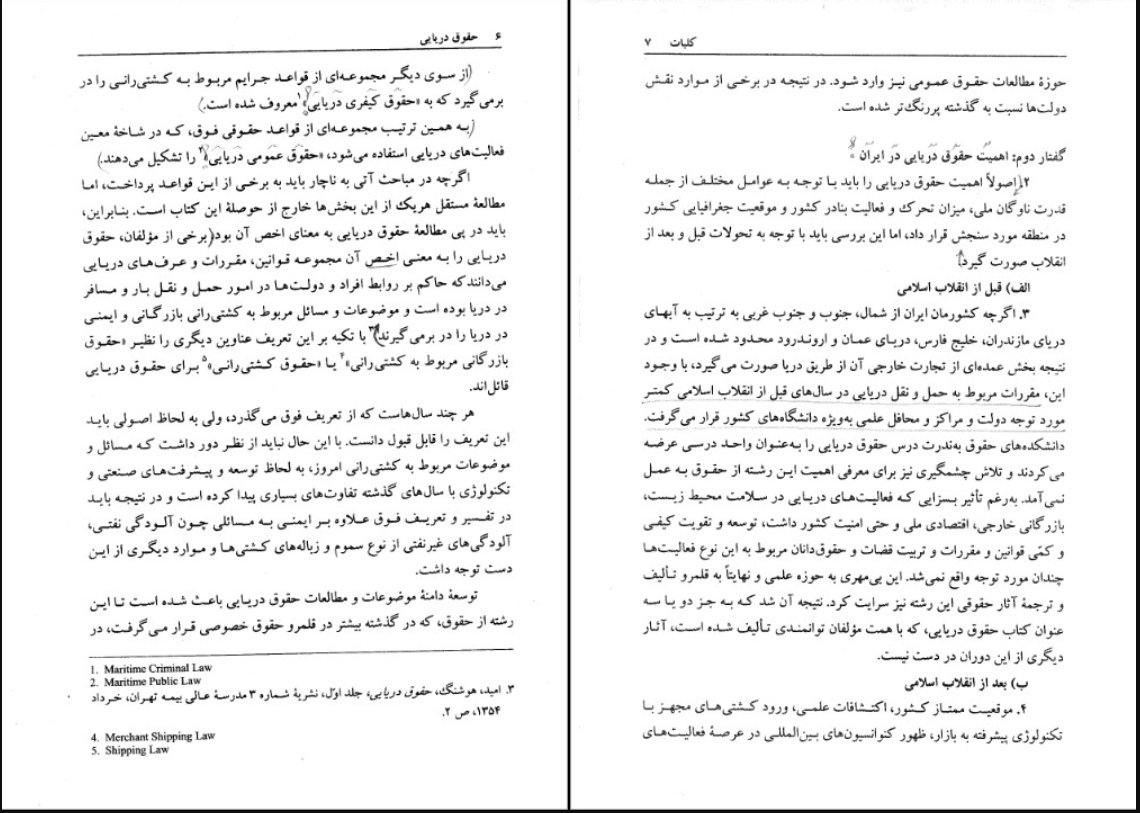 ۶ حقوق دریایی
(از سوی دیگر مجموعه‌ای از قواعد جرایم مربوط به کشتی‌رانی را در
برمی‌گیرد که به «حقوق کیفری دریایی»۱ معروف شده است.)
(به همین ترتیب مجموعه‌ای از قواعد حقوقی فوق، که در شاخهٔ معین
فعالیت‌های دریایی استفاده می‌شود، «حقوق عمومی دریایی»۲ را تشکیل می‌دهند.)
اگرچه در مباحث آتی به ناچار باید به برخی از این قواعد پرداخت، اما
مطالعهٔ مستقل هریک از این بخش‌ها خارج از حوصلهٔ این کتاب است. بنابراین،
باید در پی مطالعهٔ حقوق دریایی به معنای اخص آن بود. (برخی از مؤلفان، حقوق
دریایی را به معنی اخص آن مجموعه قوانین، مقررات و عرف‌های دریایی
می‌دانند که حاکم بر روابط افراد و دولت‌ها در امور حمل و نقل بار و مسافر
در دریا بوده است و موضوعات و مسائل مربوط به کشتی‌رانی بازرگانی و ایمنی
در دریا را در برمی‌گیرند.)۳ با تکیه بر این تعریف عناوین دیگری را نظیر «حقوق
بازرگانی مربوط به کشتی‌رانی»۴ یا «حقوق کشتی‌رانی»۵ برای حقوق دریایی
قائل‌اند.
هر چند سال‌هاست که از تعریف فوق می‌گذرد، ولی به لحاظ اصولی باید
این تعریف را قابل قبول دانست. با این حال نباید از نظر دور داشت که مسائل و
موضوعات مربوط به کشتی‌رانی امروز، به لحاظ توسعه و پیشرفت‌های صنعتی و
تکنولوژی با سال‌های گذشته تفاوت‌های بسیاری پیدا کرده است و در نتیجه باید
در تفسیر و تعریف فوق علاوه بر ایمنی به مسائلی چون آلودگی نفتی،
آلودگی‌های غیرنفتی از نوع سموم و زباله‌های کشتی‌ها و موارد دیگری از این
دست توجه داشت.
توسعهٔ دامنهٔ موضوعات و مطالعات حقوق دریایی باعث شده است تا این
رشته از حقوق، که در گذشته بیشتر در قلمرو حقوق خصوصی قرار می‌گرفت، در
1. Maritime Criminal Law
2. Maritime Public Law
۳. امید، هوشنگ، حقوق دریایی، جلد اول، نشریهٔ شماره ۳ مدرسهٔ عالی بیمه تهران، خرداد
۱۳۵۴، ص ۲.
4. Merchant Shipping Law
5. Shipping Law
کلیات ۷
حوزهٔ مطالعات حقوق عمومی نیز وارد شود. در نتیجه در برخی از موارد نقش
دولت‌ها نسبت به گذشته پررنگ‌تر شده است.
گفتار دوم: اهمیت حقوق دریایی در ایران
۲. اصولاً اهمیت حقوق دریایی را باید با توجه به عوامل مختلف از جمله
قدرت ناوگان ملی، میزان تحرک و فعالیت بنادر کشور و موقعیت جغرافیایی کشور
در منطقه مورد سنجش قرار داد، اما این بررسی باید با توجه به تحولات قبل و بعد از
انقلاب صورت گیرد.
الف) قبل از انقلاب اسلامی
۳. اگرچه کشورمان ایران از شمال، جنوب و جنوب غربی به ترتیب به آبهای
دریای مازندران، خلیج فارس، دریای عمان و اروندرود محدود شده است و در
نتیجه بخش عمده‌ای از تجارت خارجی آن از طریق دریا صورت می‌گیرد، با وجود
این، مقررات مربوط به حمل و نقل دریایی در سال‌های قبل از انقلاب اسلامی کمتر
مورد توجه دولت و مراکز و محافل علمی به‌ویژه دانشگاه‌های کشور قرار می‌گرفت.
دانشکده‌های حقوق به‌ندرت درس حقوق دریایی را به‌عنوان واحد درسی عرضه
می‌کردند و تلاش چشمگیری نیز برای معرفی اهمیت این رشته از حقوق به عمل
نمی‌آمد. به‌رغم تأثیر بسزایی که فعالیت‌های دریایی در سلامت محیط زیست،
بازرگانی خارجی، اقتصادی ملی و حتی امنیت کشور داشت، توسعه و تقویت کیفی
و کمّی قوانین و مقررات و تربیت قضات و حقوق‌دانان مربوط به این نوع فعالیت‌ها
چندان مورد توجه واقع نمی‌شد. این بی‌مهری به حوزه علمی و نهایتاً به قلمرو تألیف
و ترجمهٔ آثار حقوقی این رشته نیز سرایت کرد. نتیجه آن شد که به جز دو یا سه
عنوان کتاب حقوق دریایی، که با همت مؤلفان توانمندی تألیف شده است، آثار
دیگری از این دوران در دست نیست.
ب) بعد از انقلاب اسلامی
۴. موقعیت ممتاز کشور، اکتشافات علمی، ورود کشتی‌های مجهز با
تکنولوژی پیشرفته به بازار، ظهور کنوانسیون‌های بین‌المللی در عرصهٔ فعالیت‌های